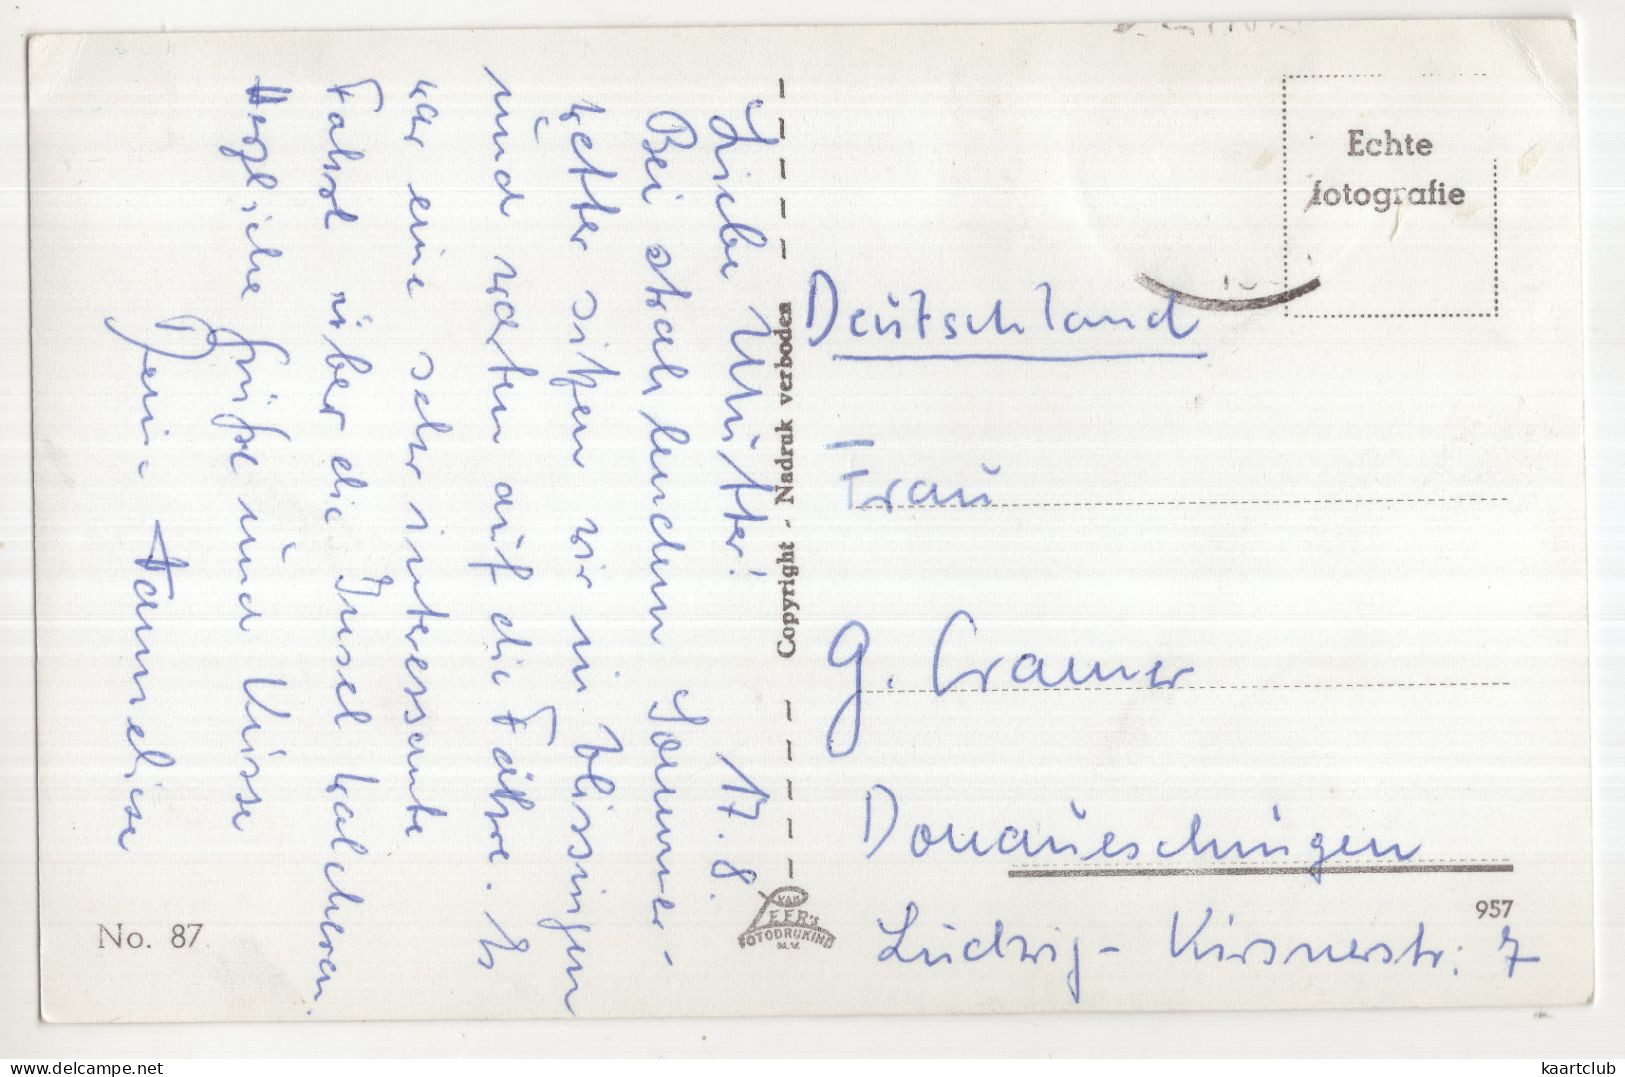 17. 8.
Liebe Mutter!
Bei strahlendem Sommer-
wetter sitzen wir in Vlissingen
und warten auf die Fähre. Es
war eine sehr interessante
Fahrt über die Insel Walcheren.
Herzliche Grüße und Küsse
Deine Hannelise
No. 87
Copyright - Nadruk verboden
VAN
LEER's
FOTODRUKIND
N.V.
Echte
fotografie
Deutschland
Frau
G. Cramer
Donaueschingen
957
Ludwig-Kirsnerstr. 7
kaartclub